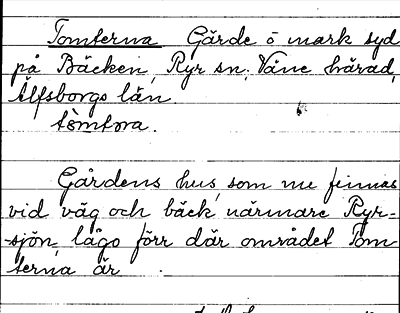 Tomterna Gärde o mark syd
på Bäcken, Ryr sn. Väne härad,
Älfsborgs län.
tòmtṇa.
Gårdens hus, som nu finnas
vid väg och bäck närmare Ryr-
-sjön, lågo förr där området Tom
terna är.